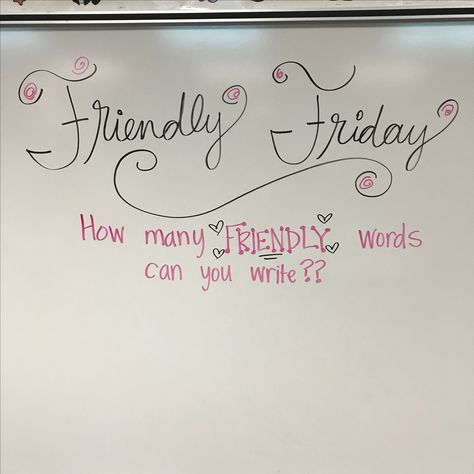 Friendly Friday
How many FRIENDLY words
can you write??